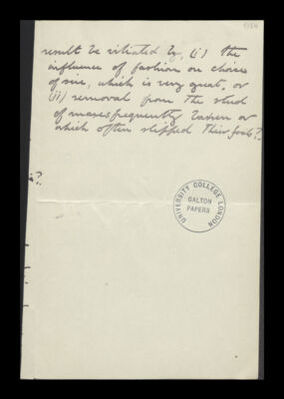 result be vitiated by, (i) the
influence of fashion on choice
of sire, which is very great, or
(ii) removal from the stud
of mares frequently barren or
which often slipped their foals?
UNIVERSITY COLLEGE LONDON
GALTON
PAPERS